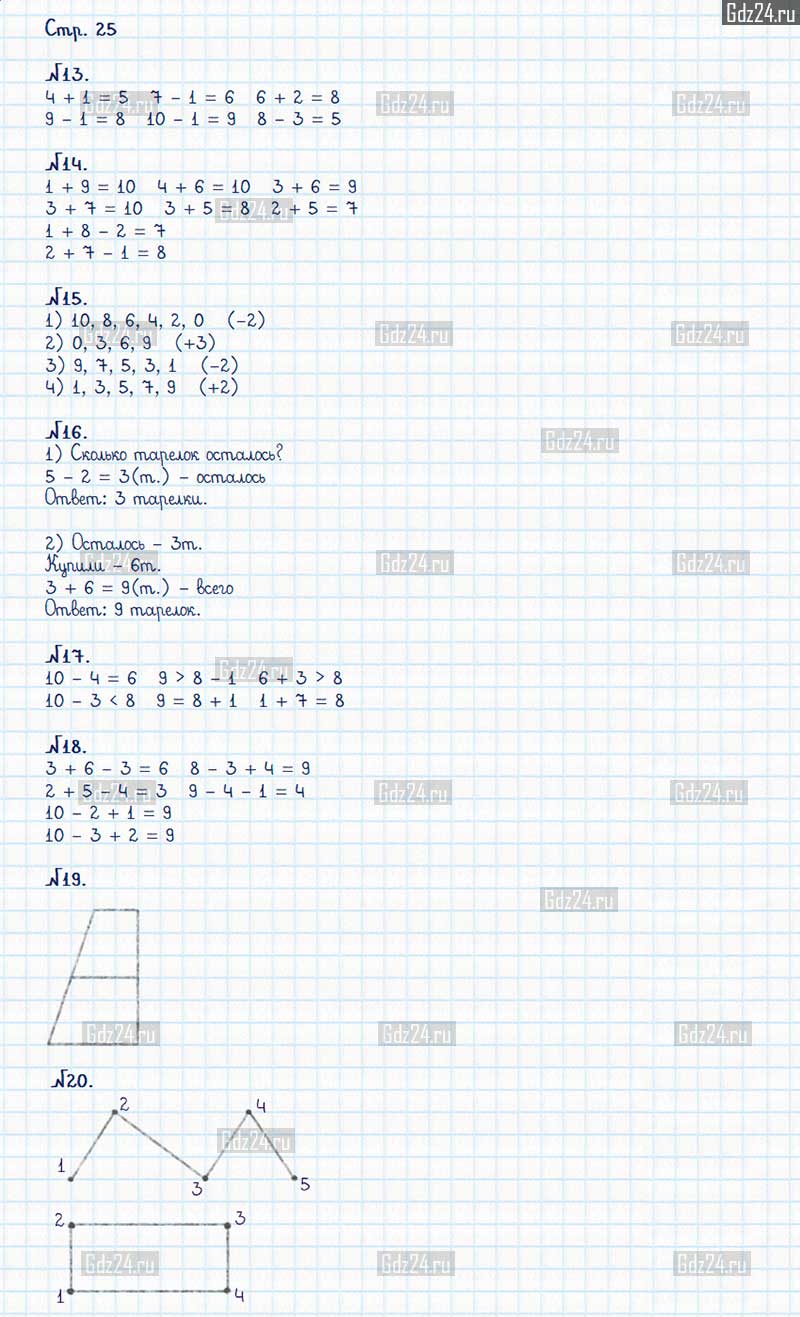 Gdz24.ru
Стр. 25
№13.
4 + 1 = 5 7 - 1 = 6 6 + 2 = 8
9 - 1 = 8 10 - 1 = 9 8 - 3 = 5
Gdz24.ru Gdz24.ru Gdz24.ru
№14.
1 + 9 = 10 4 + 6 = 10 3 + 6 = 9
3 + 7 = 10 3 + 5 = 8 2 + 5 = 7
Gdz24.ru
1 + 8 - 2 = 7
2 + 7 - 1 = 8
№15.
1) 10, 8, 6, 4, 2, 0 (-2)
2) 0, 3, 6, 9 (+3)
Gdz24.ru Gdz24.ru Gdz24.ru
3) 9, 7, 5, 3, 1 (-2)
4) 1, 3, 5, 7, 9 (+2)
№16.
Gdz24.ru
1) Сколько тарелок осталось?
5 - 2 = 3(т.) - осталось
Ответ: 3 тарелки.
2) Осталось - 3т.
Купили - 6т.
Gdz24.ru Gdz24.ru Gdz24.ru
3 + 6 = 9(т.) - всего
Ответ: 9 тарелок.
№17.
Gdz24.ru
10 - 4 = 6 9 > 8 - 1 6 + 3 > 8
10 - 3 < 8 9 = 8 + 1 1 + 7 = 8
№18.
3 + 6 - 3 = 6 8 - 3 + 4 = 9
2 + 5 - 4 = 3 9 - 4 - 1 = 4
Gdz24.ru Gdz24.ru Gdz24.ru
10 - 2 + 1 = 9
10 - 3 + 2 = 9
№19.
Gdz24.ru
Gdz24.ru Gdz24.ru Gdz24.ru
№20.
2 4
Gdz24.ru
1
3 5
2 3
Gdz24.ru Gdz24.ru Gdz24.ru
1 4